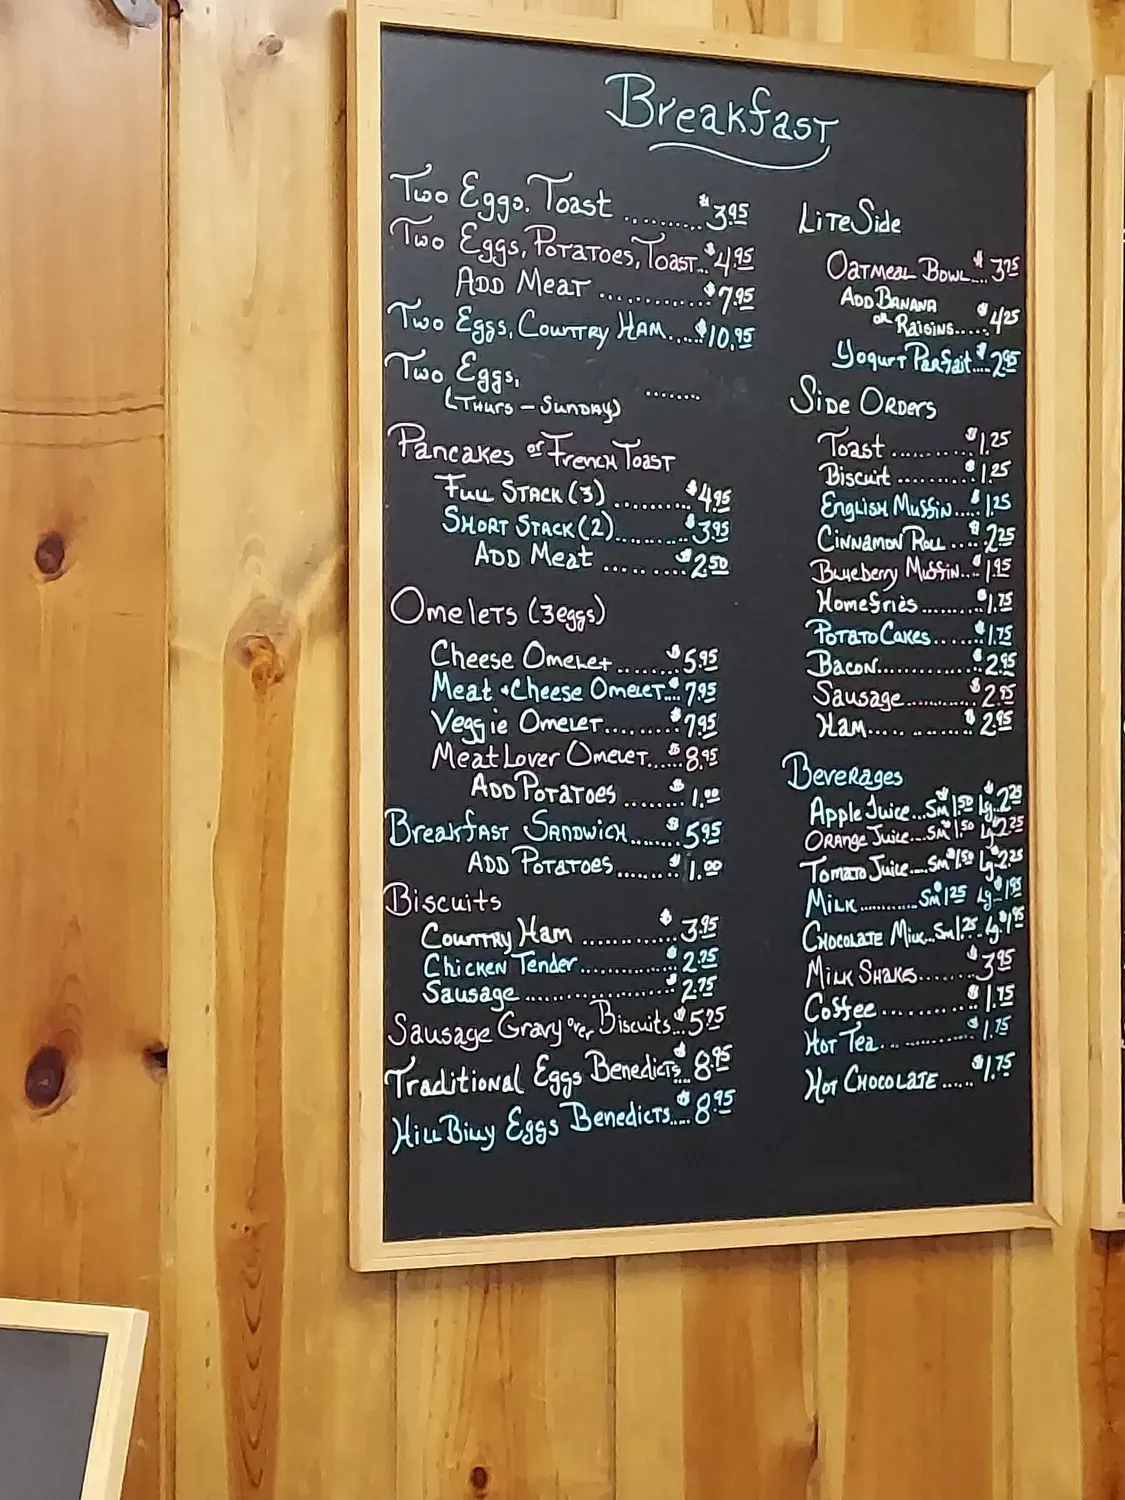 Breakfast
Two Eggs, Toast .......... $3.95
Two Eggs, Potatoes, Toast.. $4.95
Add Meat ............. $7.95
Two Eggs, Country Ham...... $10.95
Two Eggs, ........
(Thurs - Sunday)
Pancakes or French Toast
Full Stack (3) .......... $4.95
Short Stack (2).......... $3.95
Add Meat .......... $2.50
Omelets (3 eggs)
Cheese Omelet......... $5.95
Meat & Cheese Omelet... $7.95
Veggie Omelet.......... $7.95
Meat Lover Omelet...... $8.95
Add Potatoes ........ $1.00
Breakfast Sandwich....... $5.95
Add Potatoes......... $1.00
Biscuits
Country Ham ............ $3.95
Chicken Tender............ $2.75
Sausage .................... $2.75
Sausage Gravy over Biscuits... $5.75
Traditional Eggs Benedicts... $8.95
HillBilly Eggs Benedicts.... $8.95
Lite Side
Oatmeal Bowl... $3.75
Add Banana
or Raisins..... $4.25
Yogurt Parfait.... $2.95
Side Orders
Toast .......... $1.25
Biscuit .......... $1.25
English Muffin..... $1.25
Cinnamon Roll ..... $2.25
Blueberry Muffin... $1.95
Homefries.......... $1.75
Potato Cakes........ $1.75
Bacon.............. $2.95
Sausage............ $2.95
Ham..... ......... $2.95
Beverages
Apple Juice...Sm $1.50 Lg..$2.25
Orange Juice...Sm $1.50 Lg $2.25
Tomato Juice....Sm $1.50 Lg..$2.25
Milk...........Sm $1.25 Lg..$1.95
Chocolate Milk...Sm $1.25 Lg $1.95
Milk Shakes........ $3.95
Coffee ............ $1.75
Hot Tea... ............ $1.75
Hot Chocolate ..... $1.75